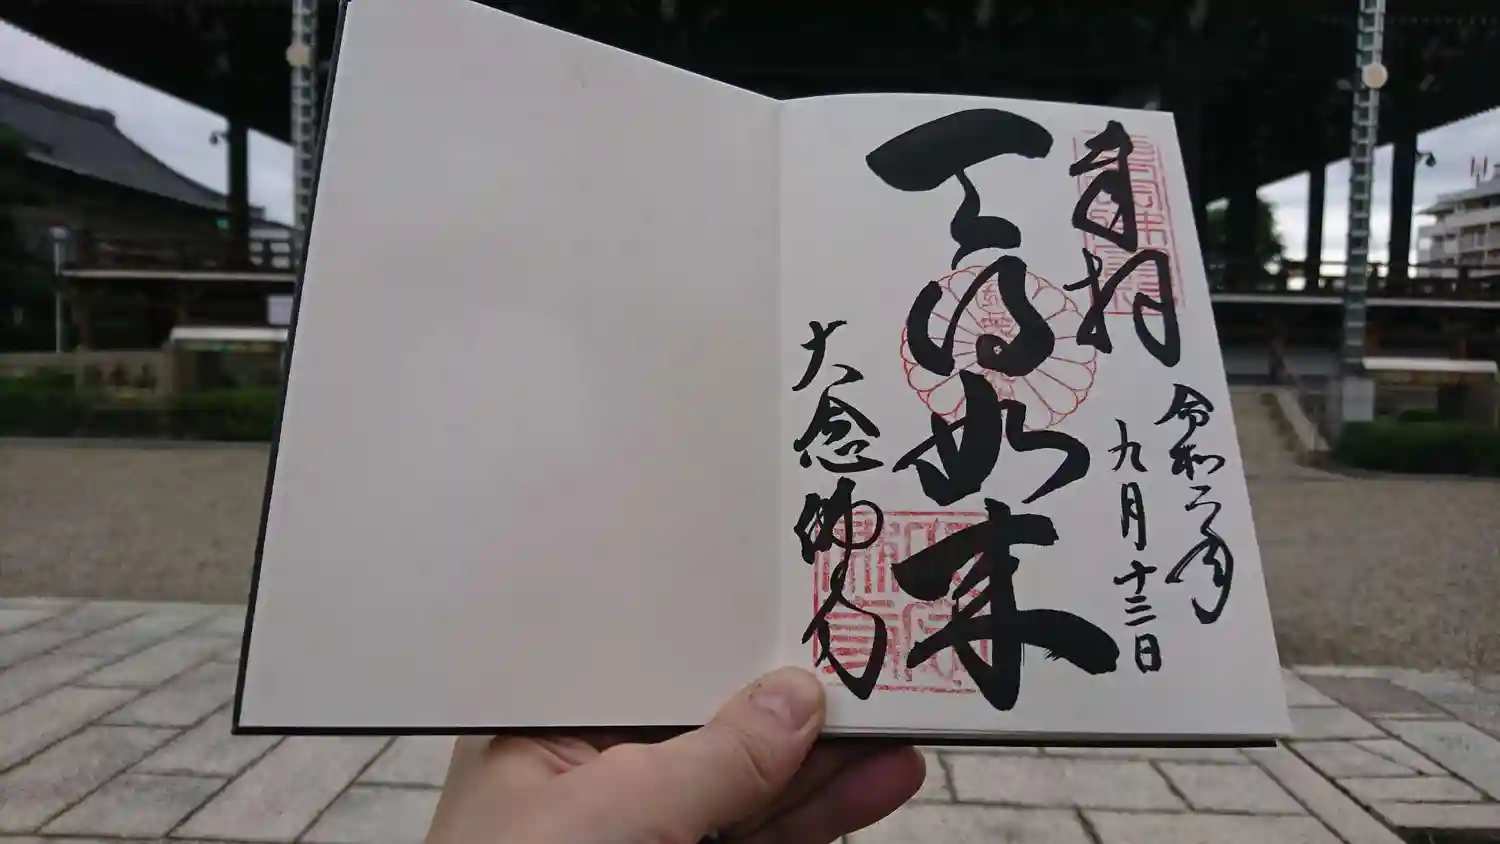 奉拝
令和二年
九月十三日
天得如来
大念佛寺